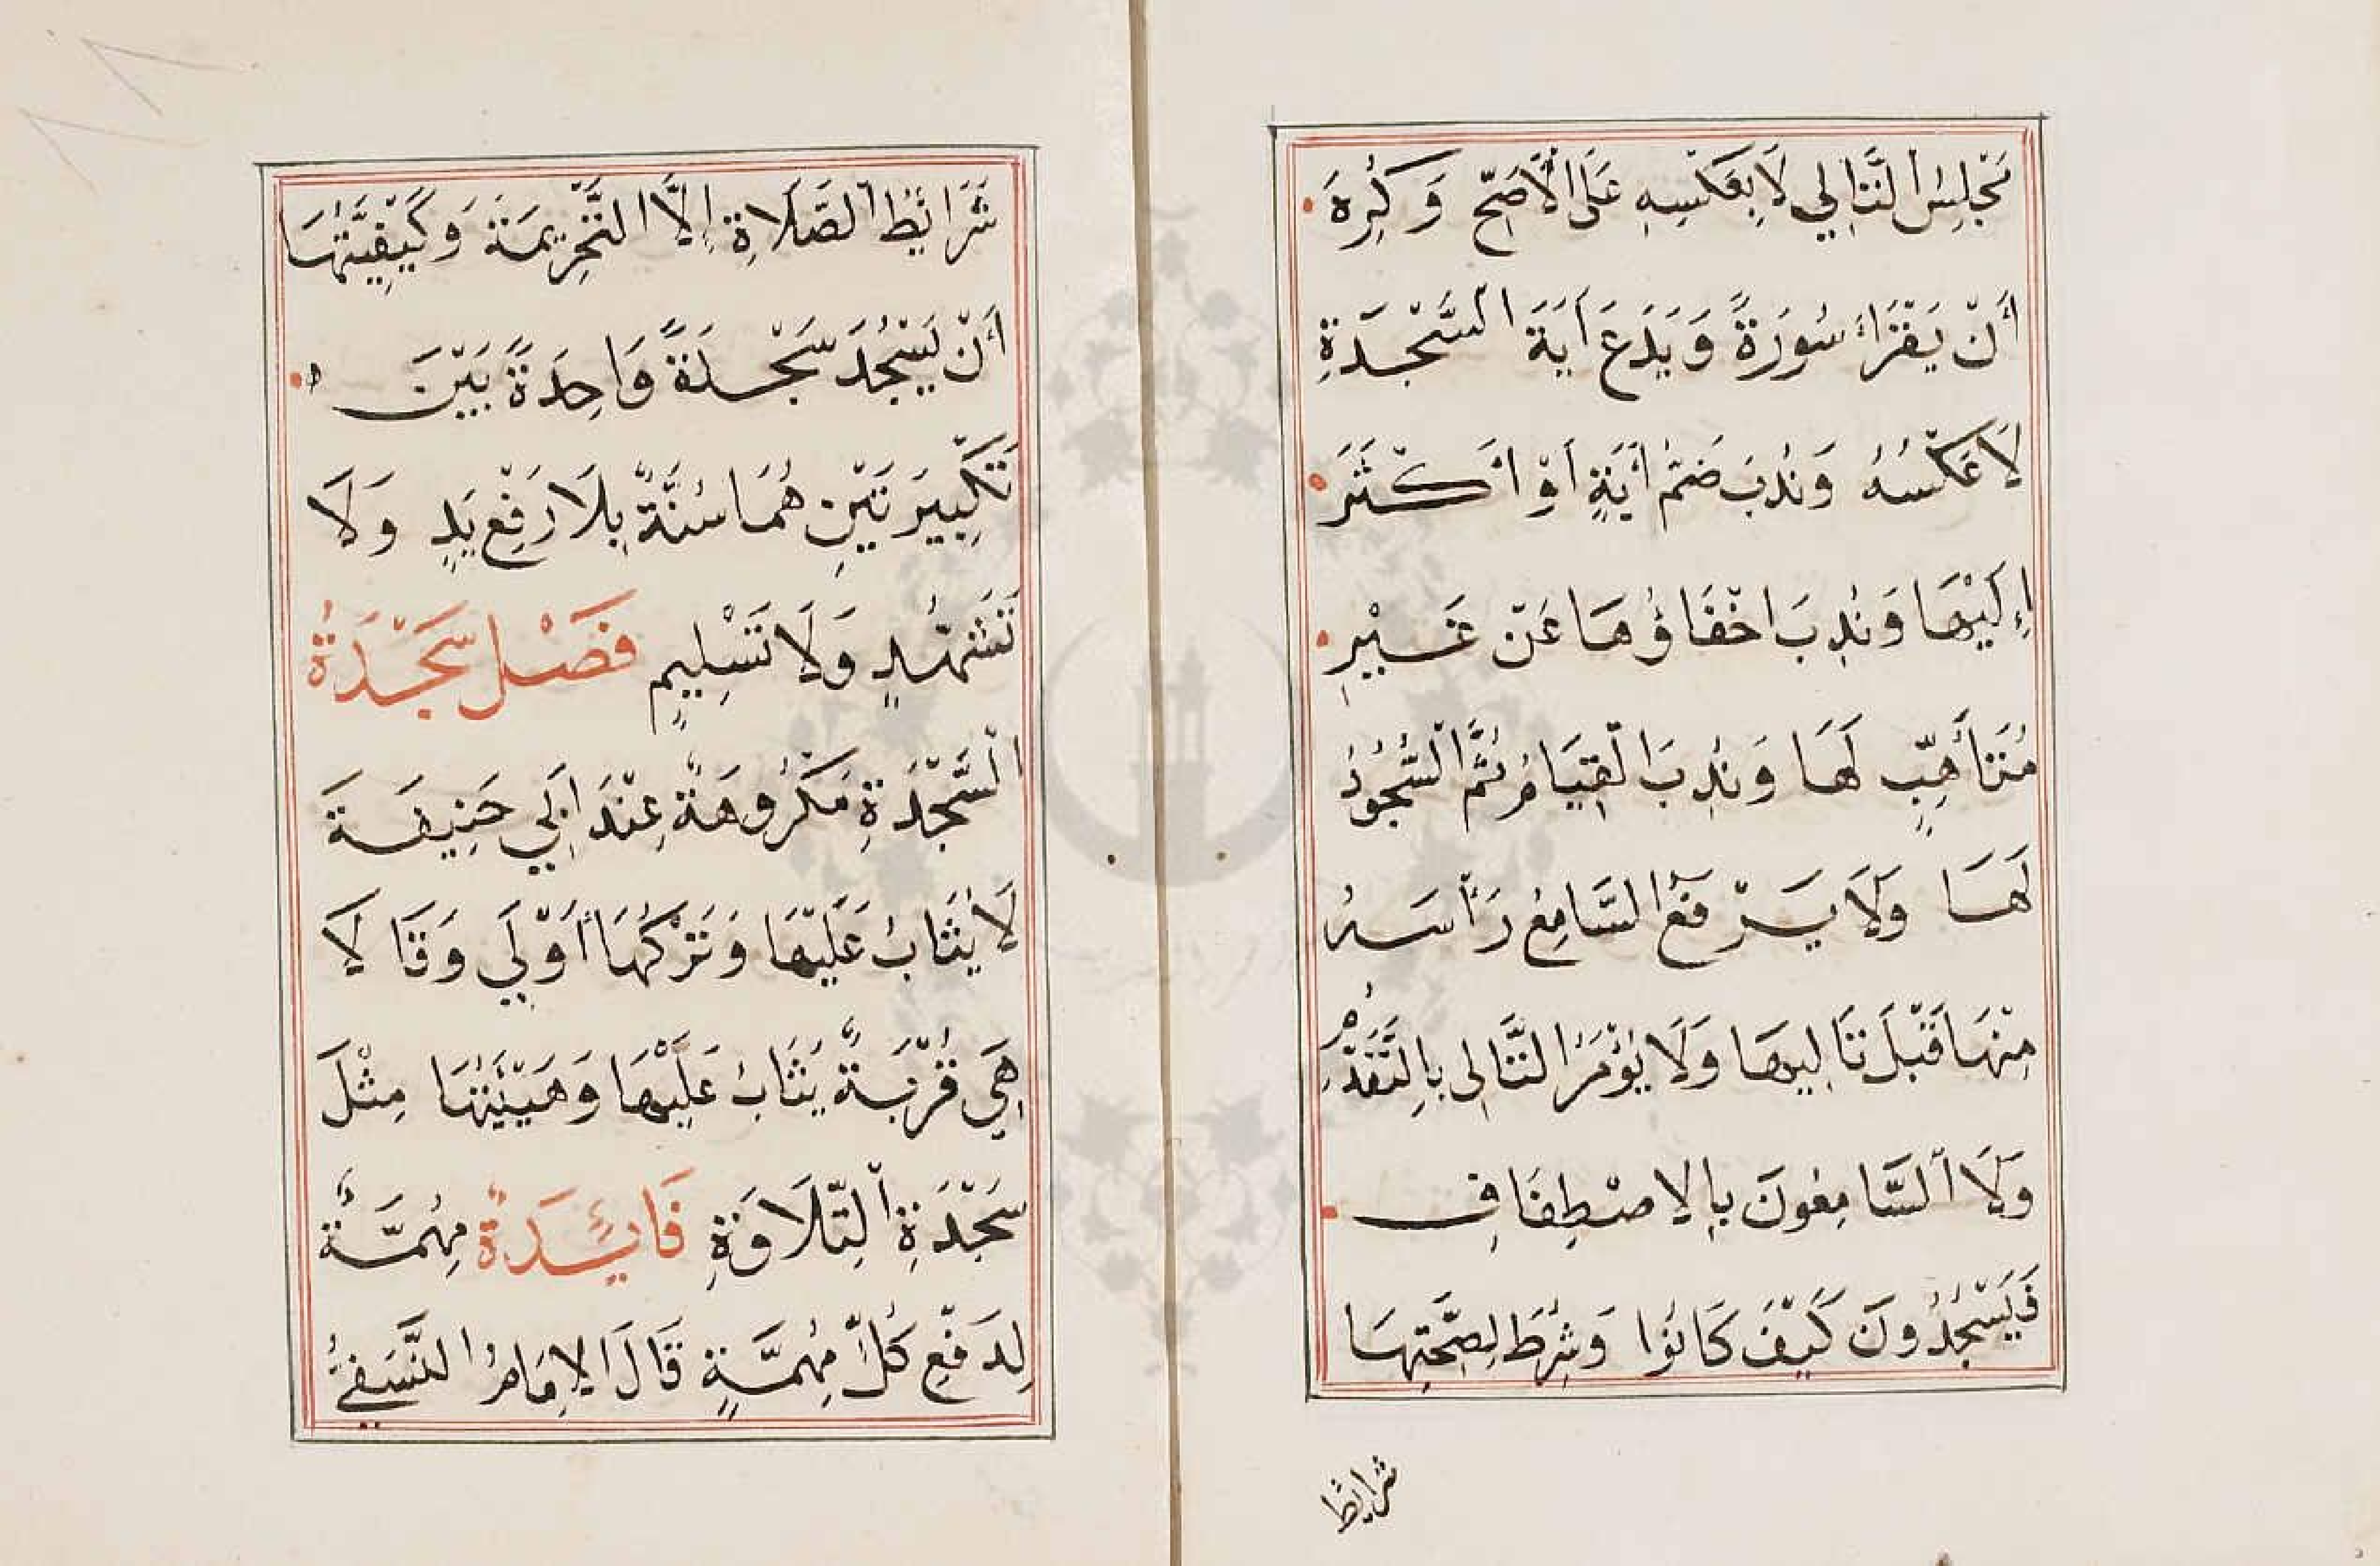 مَجْلِسِ التَّالِي لَا بِعَكْسِهِ عَلَى الْأَصَحِّ وَكُرِهَ
أَنْ يَقْرَأَ سُورَةً وَيَدَعَ اَيَةَ السَّجْدَةِ
لَا عَكْسُهُ وَنُدِبَ ضَمُّ أَيَةٍ اَوْ أَكْثَرَ
إِلَيْهَا وَنُدِبَ اخْفَاؤُهَا عَنْ غَيْرِ
مُتَأَهِّبٍ لَهَا وَنُدِبَ الْقِيَامُ ثُمَّ السُّجُودُ
لَهَا وَلَا يَرْفَعُ السَّامِعُ رَأْسَهُ
مِنْهَا قَبْلَ تَالِيهَا وَلَا يُؤْمَرُ التَّالِى بِالتَّقَدُّمِ
وَلَا السَّامِعُونَ بِالِاصْطِفَافِ
فَيَسْجُدُونَ كَيْفَ كَانُوا وَشُرِطَ لِصِحَّتِهَا
شرايط
شَرَائِطُ الصَّلَاةِ اِلَّا التَّحْرِيمَةَ وَكَيْفِيَّتُهَا
أَنْ يَسْجُدَ سَجْدَةً وَاحِدَةً بَيْنَ
تَكْبِيرَتَيْنِ هُمَا سُنَّةٌ بِلَا رَفْعِ يَدٍ وَلَا
تَشَهُّدٍ وَلَا تَسْلِيمٍ فَصْل سَجْدَةُ
السَّجْدَةِ مَكْرُوهَةٌ عِنْدَ اَبِي حَنِيفَةَ
لَا يُثَابُ عَلَيْهَا وَتَرْكُهَا أَوْلَي وَقَالَا
هِيَ قُرْبَةٌ يُثَابُ عَلَيْهَا وَهَيْئَتُهَا مِثْلَ
سَجْدَةِ التِّلَاوَةِ فَائِدَةٌ مُهِمَّةٌ
لِدَفْعِ كُلِّ مُهِمَّةٍ قَالَ الاِمَامُ النَّسَفِيُّ